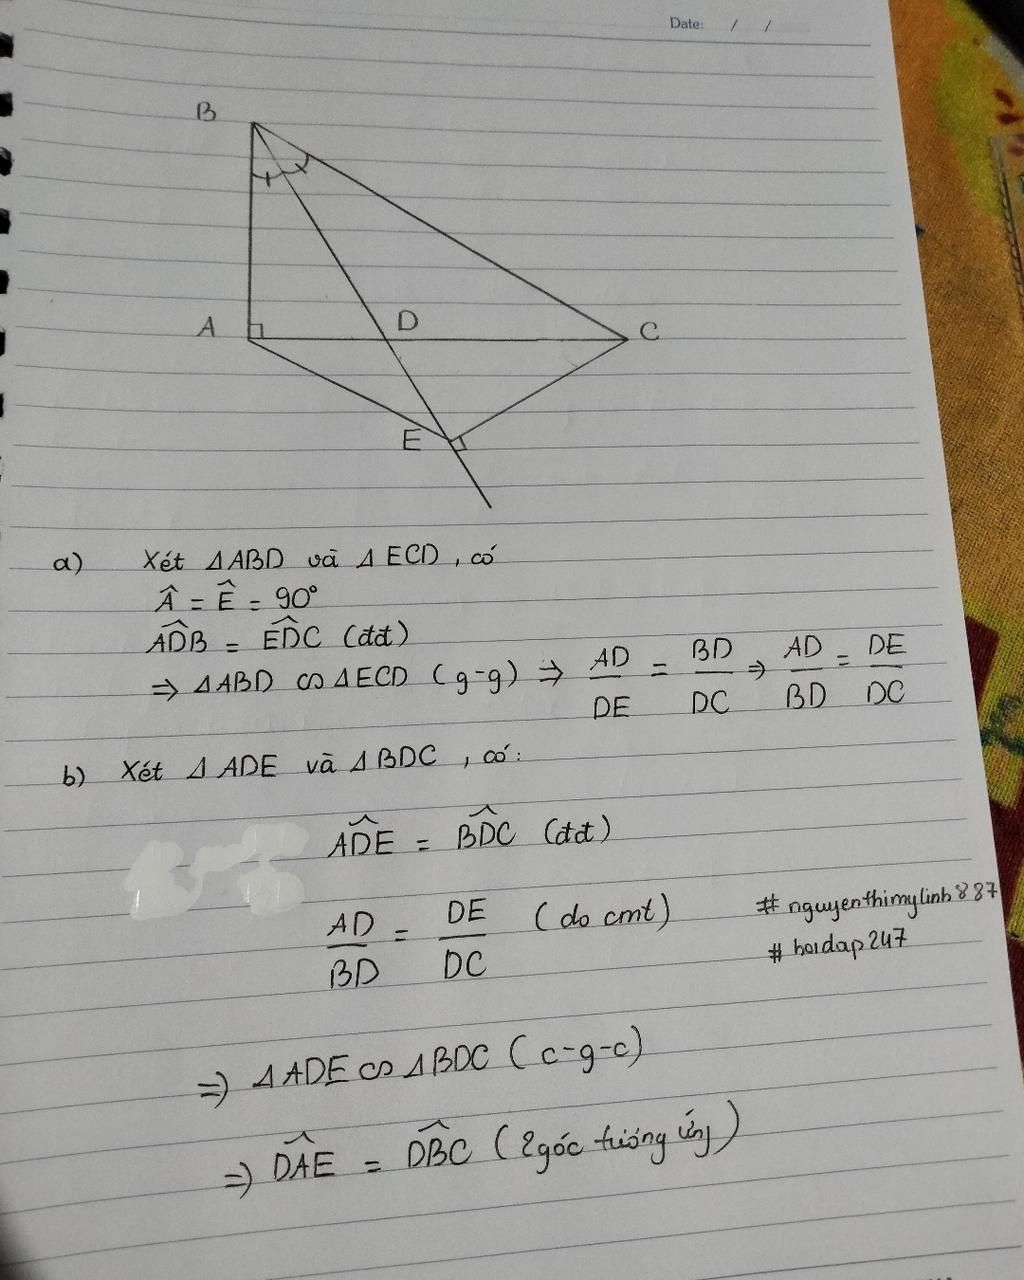 Date: / /
B
A
D
C
E
a) Xét ΔABD và ΔECD, có
Â = Ê = 90°
ADB̂ = EDĈ (đđ)
⇒ ΔABD ∽ ΔECD (g-g) ⇒ AD/DE = BD/DC ⇒ AD/BD = DE/DC
b) Xét ΔADE và ΔBDC, có:
ADÊ = BDĈ (đđ)
AD/BD = DE/DC (do cmt)
# nguyenthimylinh887
# hoidap247
⇒ ΔADE ∽ ΔBDC (c-g-c)
⇒ DAÊ = DBĈ (2 góc tương ứng)